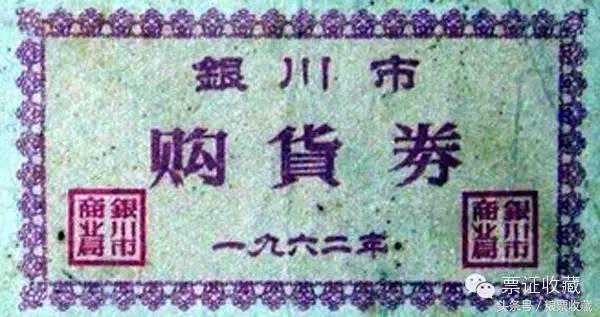 銀川市
购貨券
銀川市
商业局
銀川市
商业局
一九六二年
票证收藏
头条号／粮票收藏